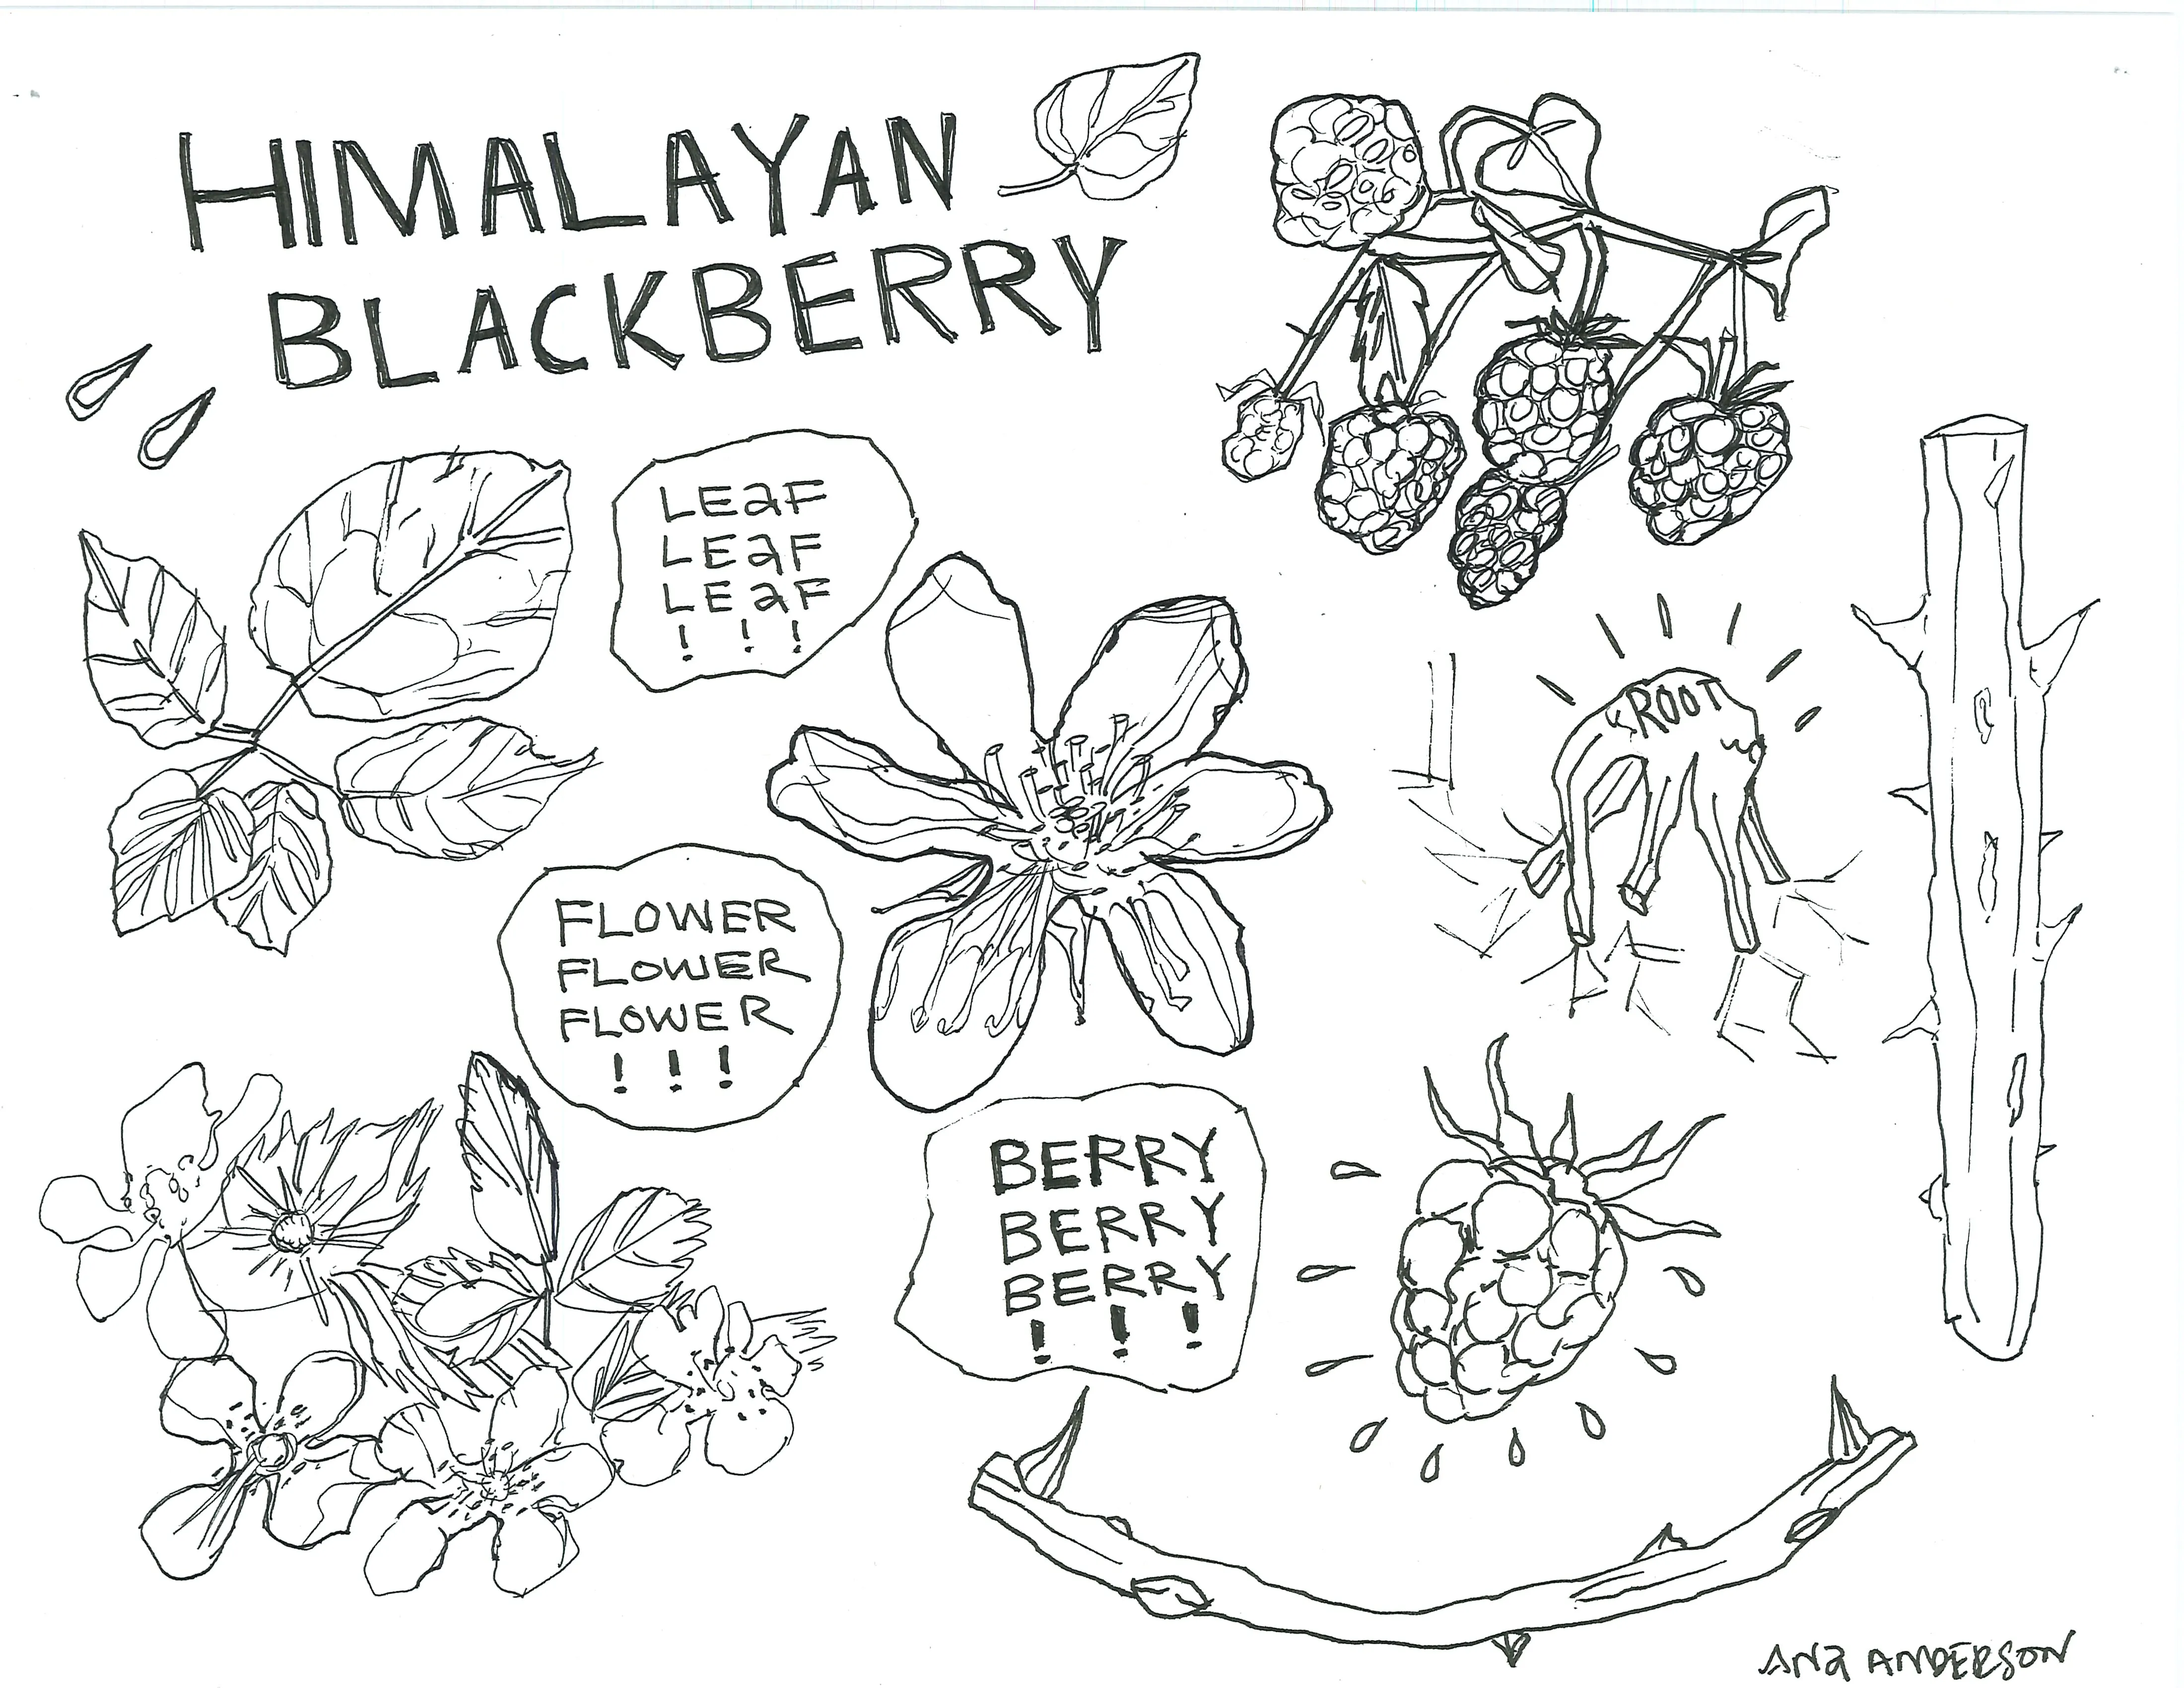 HIMALAYAN
BLACKBERRY
LEaF
LEaF
LEaF
! ! !
ROOT
FLOWER
FLOWER
FLOWER
! ! !
BERRY
BERRY
BERRY
! ! !
ANa ANDERSON